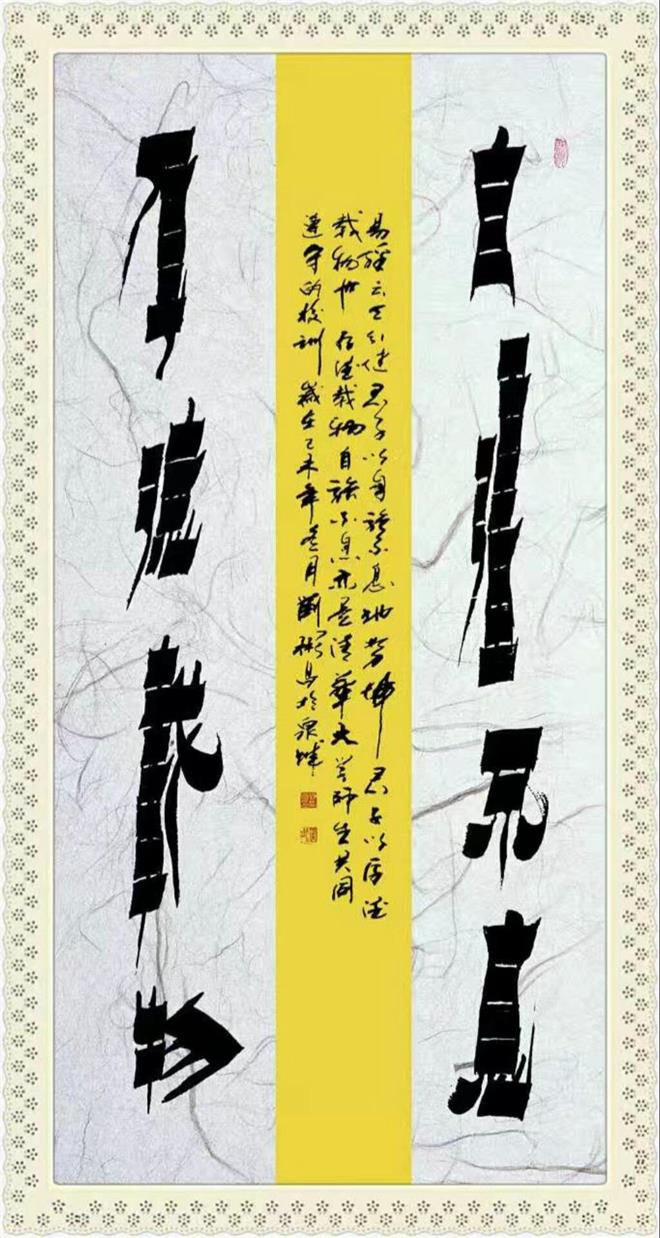 自强不息
易經云天行健君子以自强不息地势坤君子以厚德
载物也厚德载物自强不息亦是清華大学师生共同
遵守的校训歲在乙未年冬月劉彬书於泉城
厚德载物